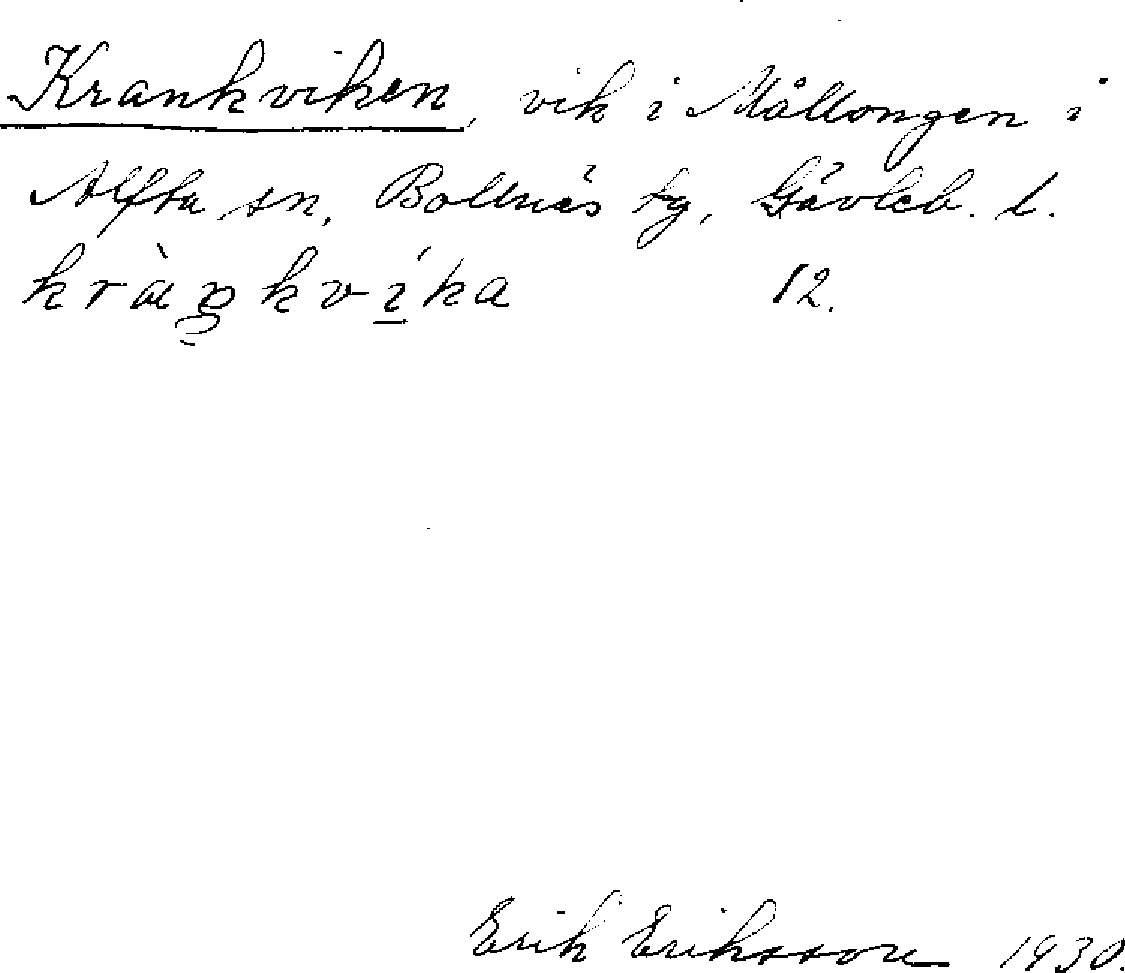 Krankviken, vik i Mållongen i
Alfta sn, Bollnäs tg, Gävleb. l.
kràŋkví̲ka 12.
Erik Eriksson 1930.